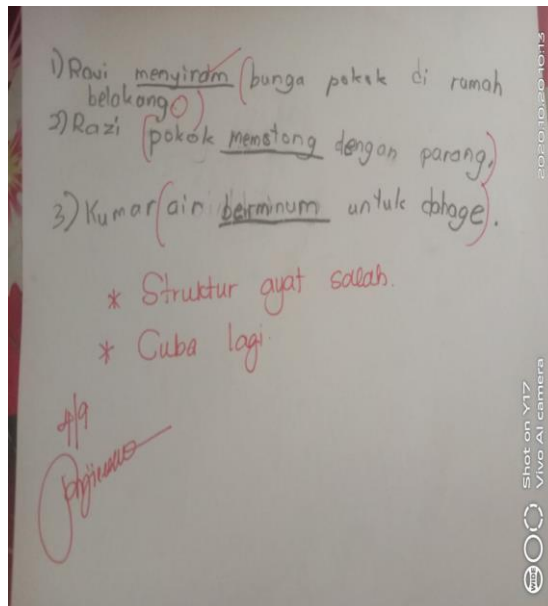 1) Ravi menyiram bunga pokok di romah
belakang
2) Razi pokok memotong dengan parang.
3) Kumar air berminum untuk dahage.
* Struktur ayat salah.
* Cuba lagi.
4/9
Shot on Y17
Vivo AI camera
2020.10.20 10:13